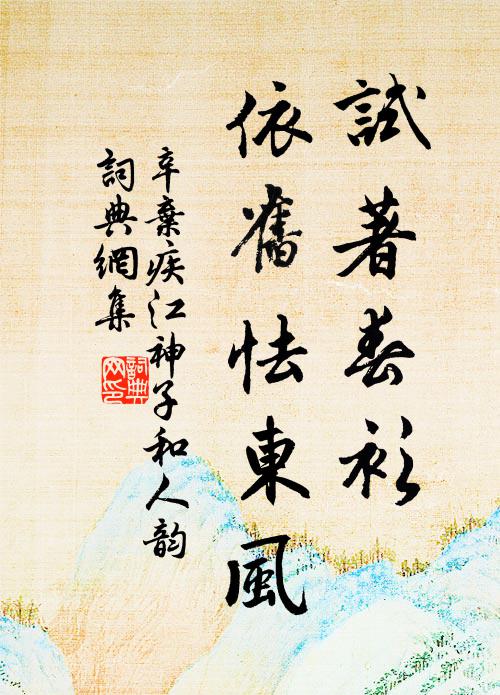 試著春衫
依舊怯東風
辛棄疾江神子和人韵
詞典網集
詞典网印